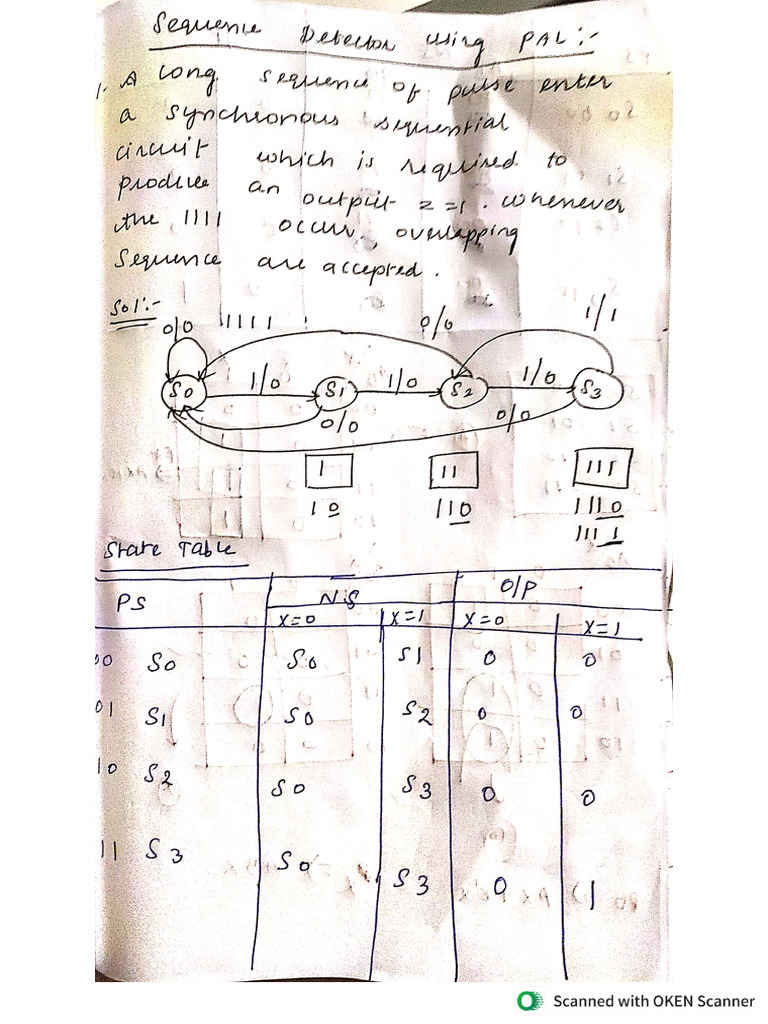 Sequence Detector using PAL :-
1. A long sequence of pulse enter
a synchronous sequential
circuit which is required to
produce an output z=1. whenever
the 1111 occur, overlapping
sequence are accepted.
Sol:-
0/0 1111 0/0 1/1
S0 1/0 S1 1/0 S2 1/0 S3
0/0 0/0
1 11 111
10 110 1110
1111
State Table
PS N.S O/P
X=0 X=1 X=0 X=1
00 S0 S0 S1 0 0
01 S1 S0 S2 0 0
10 S2 S0 S3 0 0
11 S3 S0 S3 0 1
Scanned with OKEN Scanner